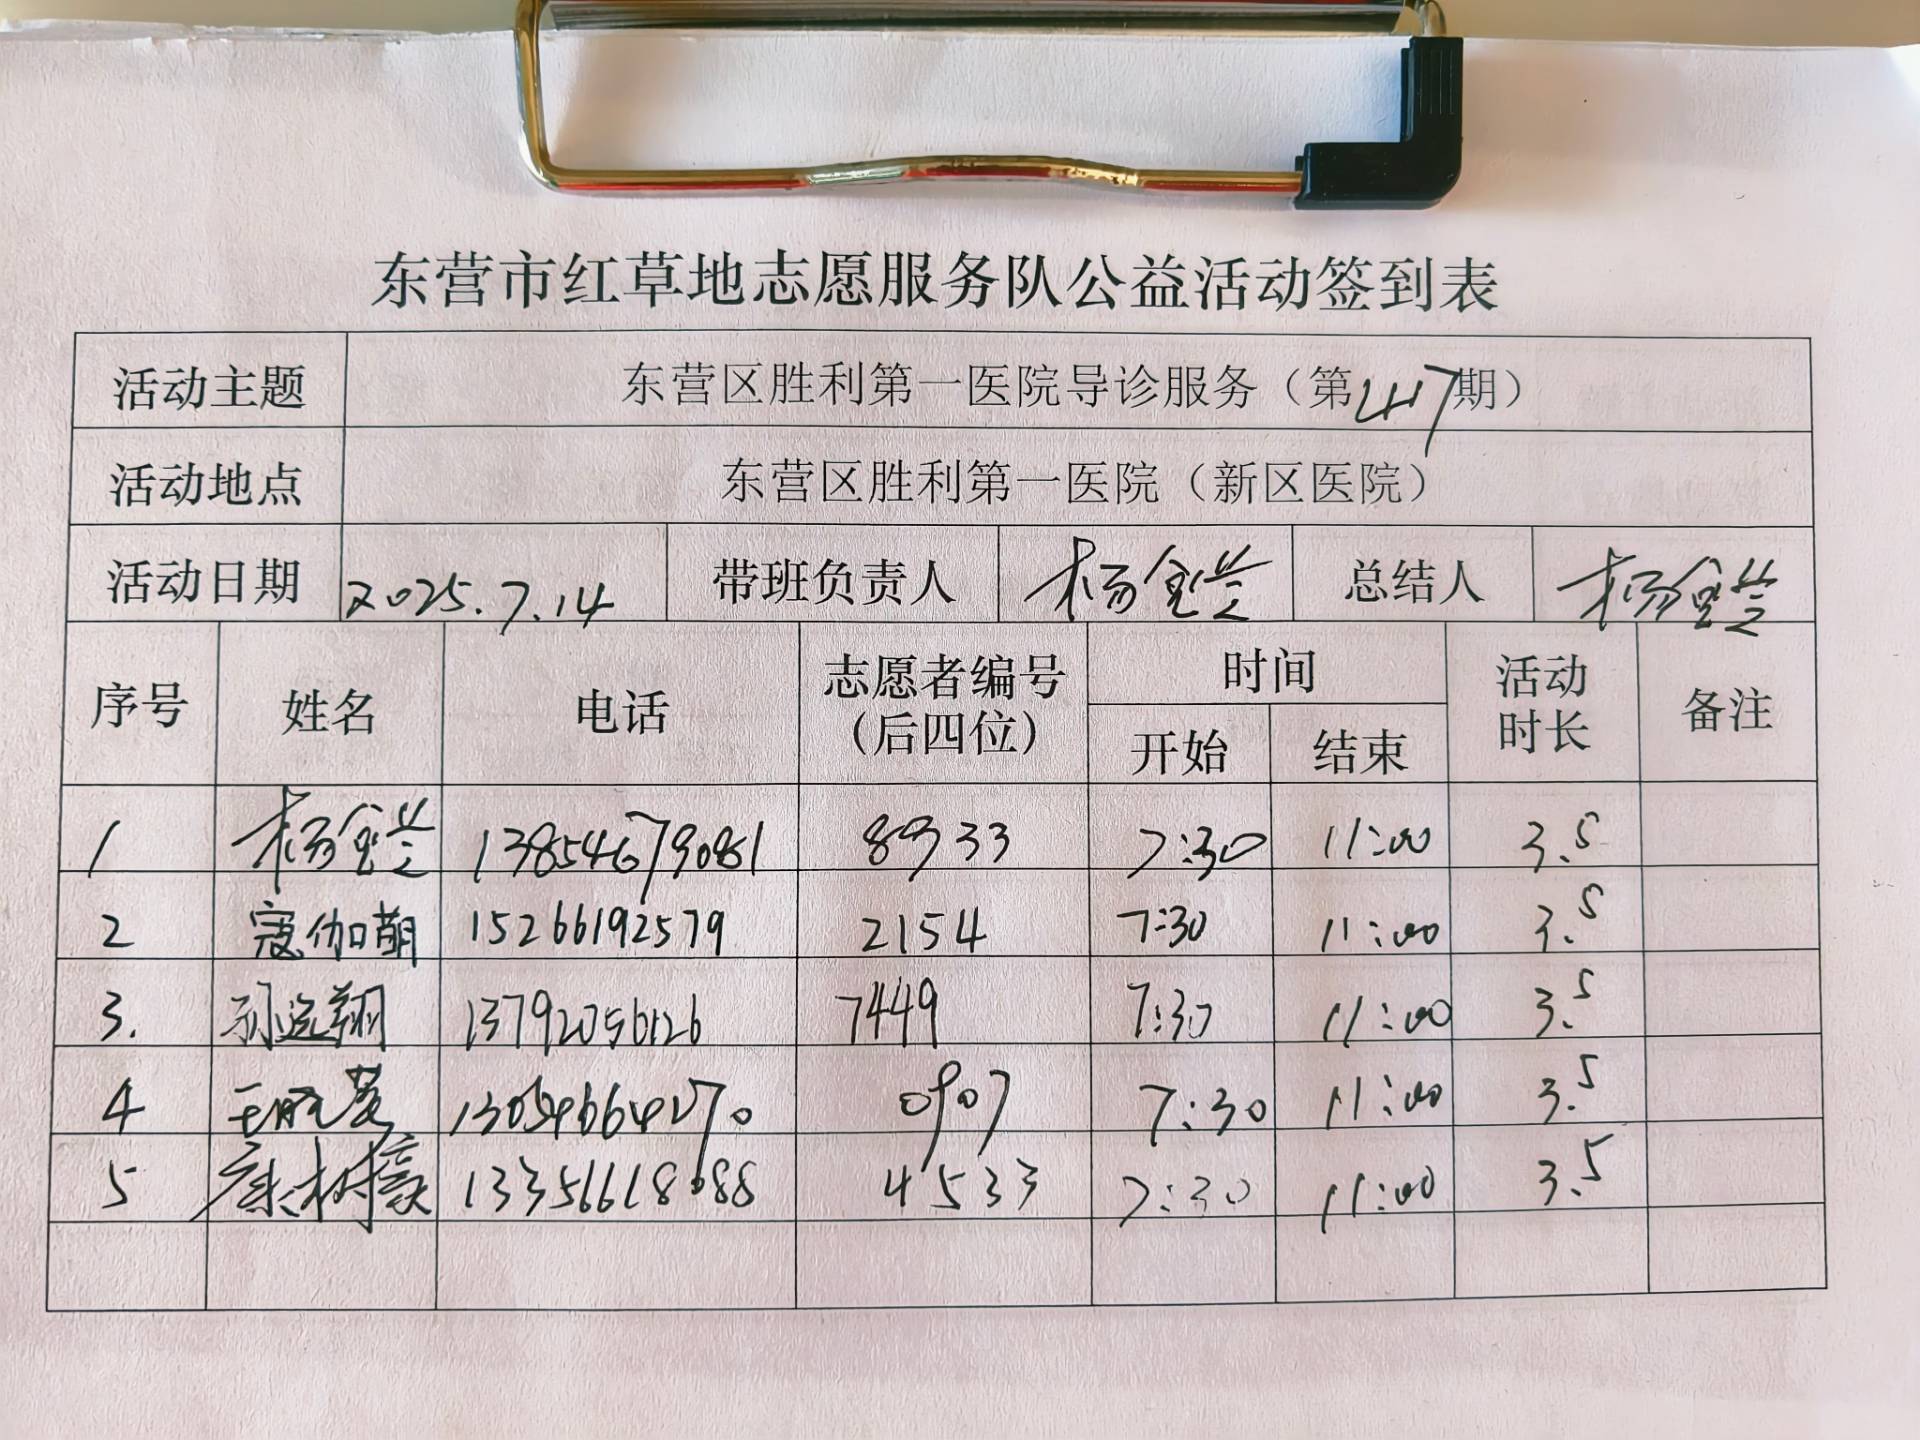 东营市红草地志愿服务队公益活动签到表
活动主题 东营区胜利第一医院导诊服务（第417期）
活动地点 东营区胜利第一医院（新区医院）
活动日期 2025.7.14 带班负责人 杨 总结人 杨
序号 姓名 电话 志愿者编号（后四位） 时间 开始 结束 活动时长 备注
1 杨 13854679081 8933 7:30 11:00 3.5
2 寇伽萌 15266192579 2154 7:30 11:00 3.5
3. 孙运翔 13792056126 7449 7:30 11:00 3.5
4 王 13054664270 0907 7:30 11:00 3.5
5 13356618688 4533 7:30 11:00 3.5